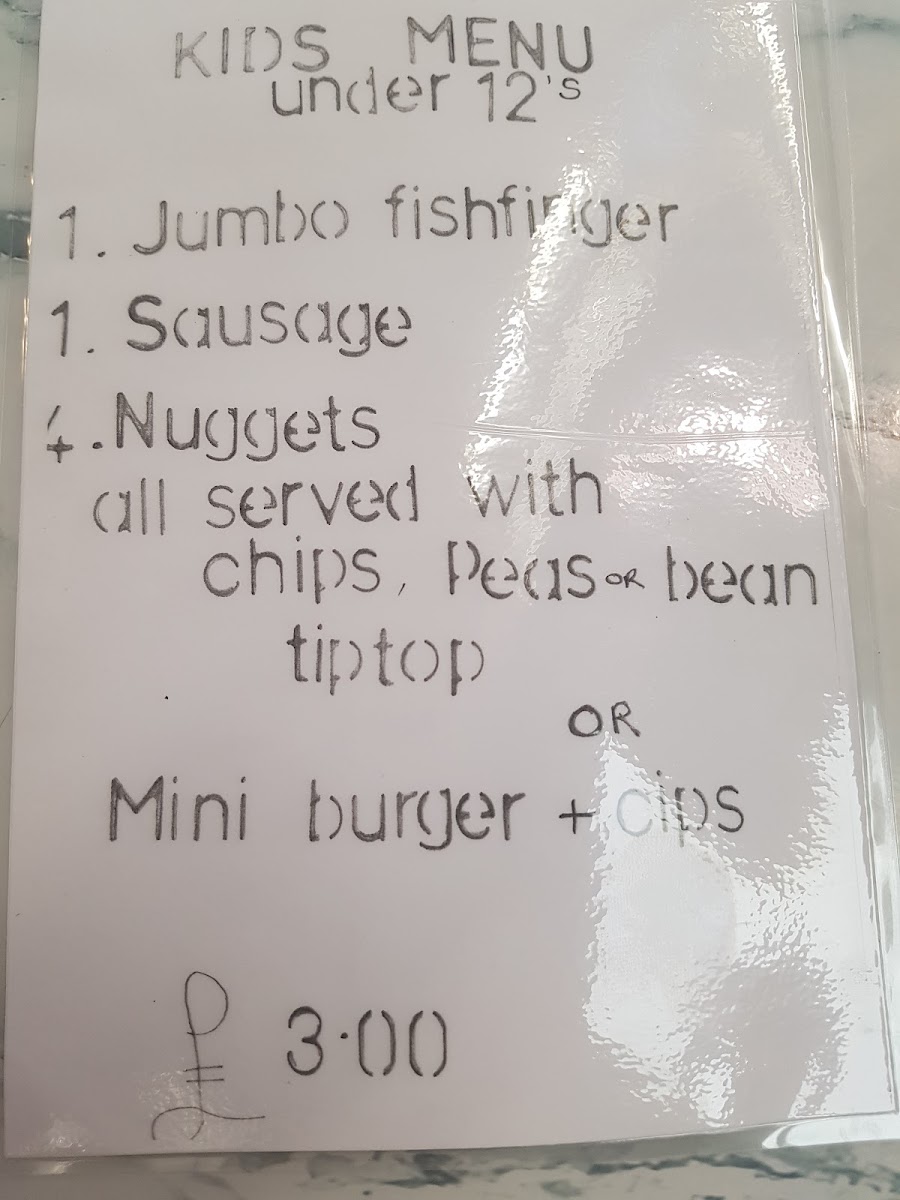 KIDS MENU
under 12's
1. Jumbo fishfinger
1. Sausage
4. Nuggets
all served with
chips, Peas OR bean
tiptop
OR
Mini burger + cips
£ 3·00